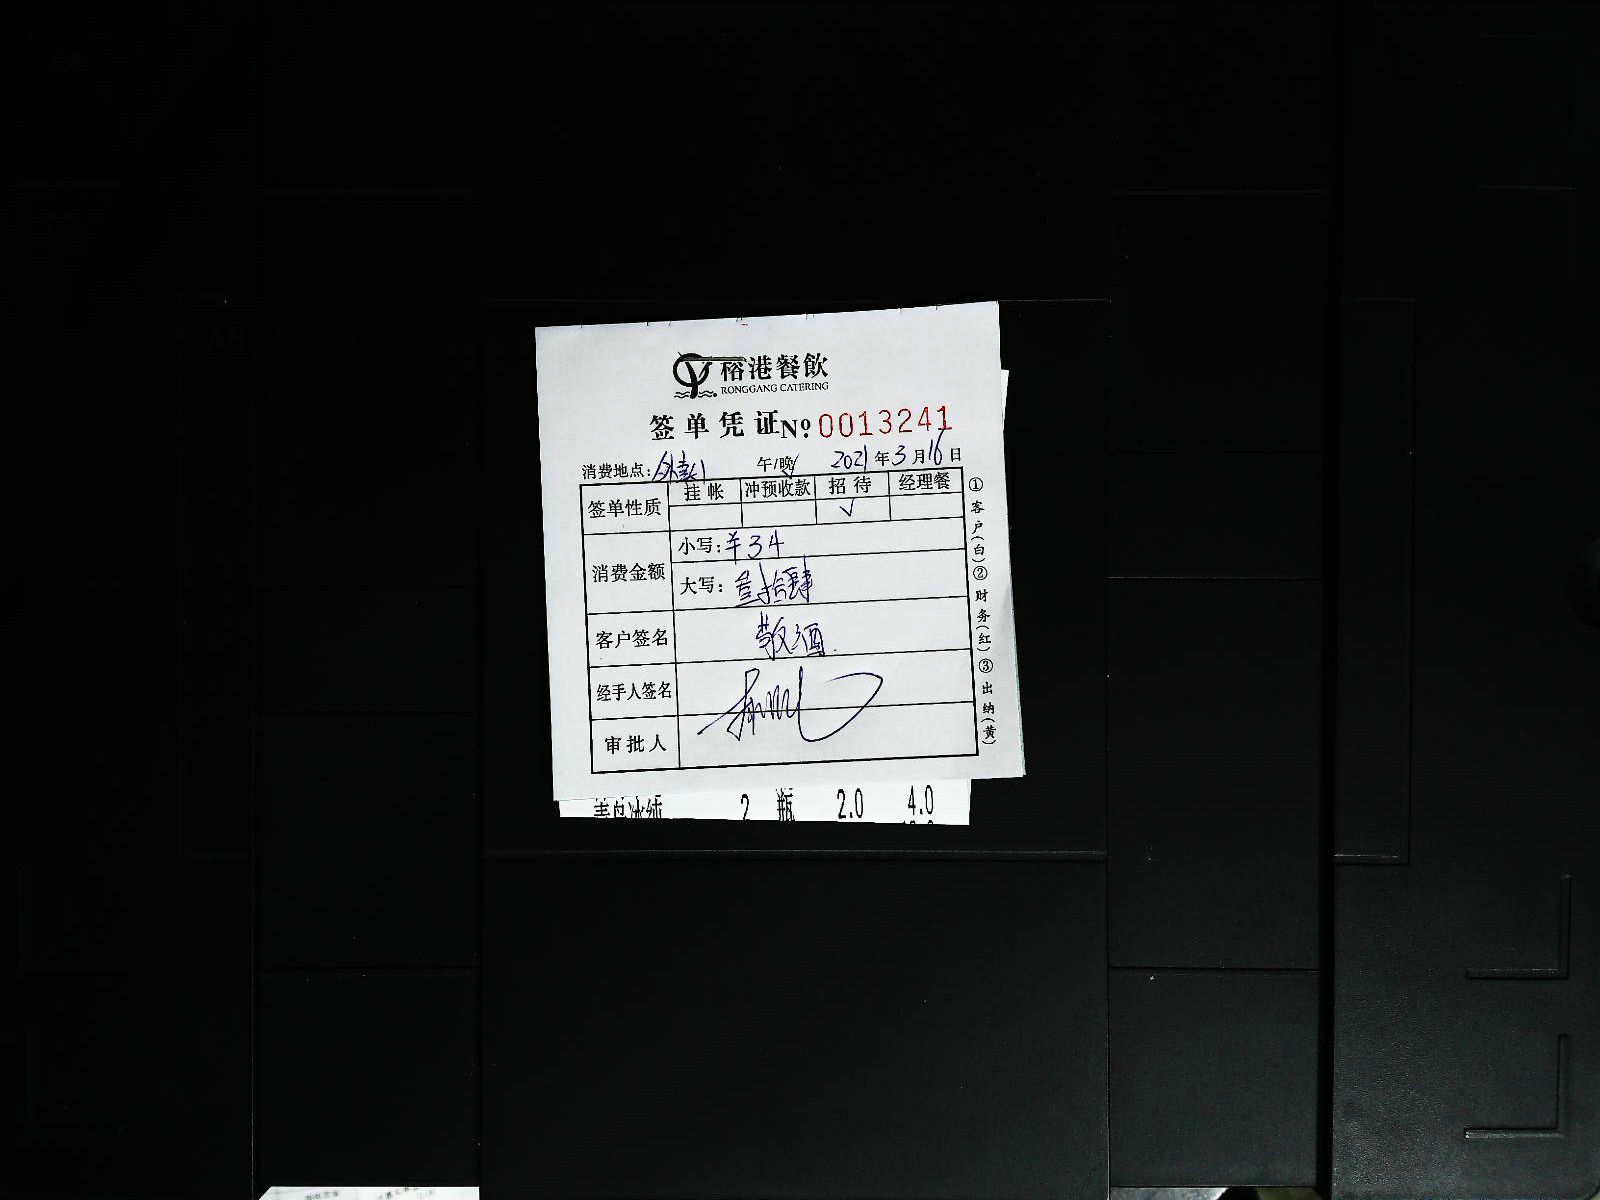 榕港餐飲
RONGGANG CATERING
签单凭证 Nº 0013241
消费地点: 午/晚 2021年3月16日
签单性质 挂帐 冲预收款 招待 经理餐
√
消费金额 小写:¥34
大写:叁拾肆
客户签名 敬酒
经手人签名
审批人
①客户(白)②财务(红)③出纳(黄)
2 瓶 2.0 4.0